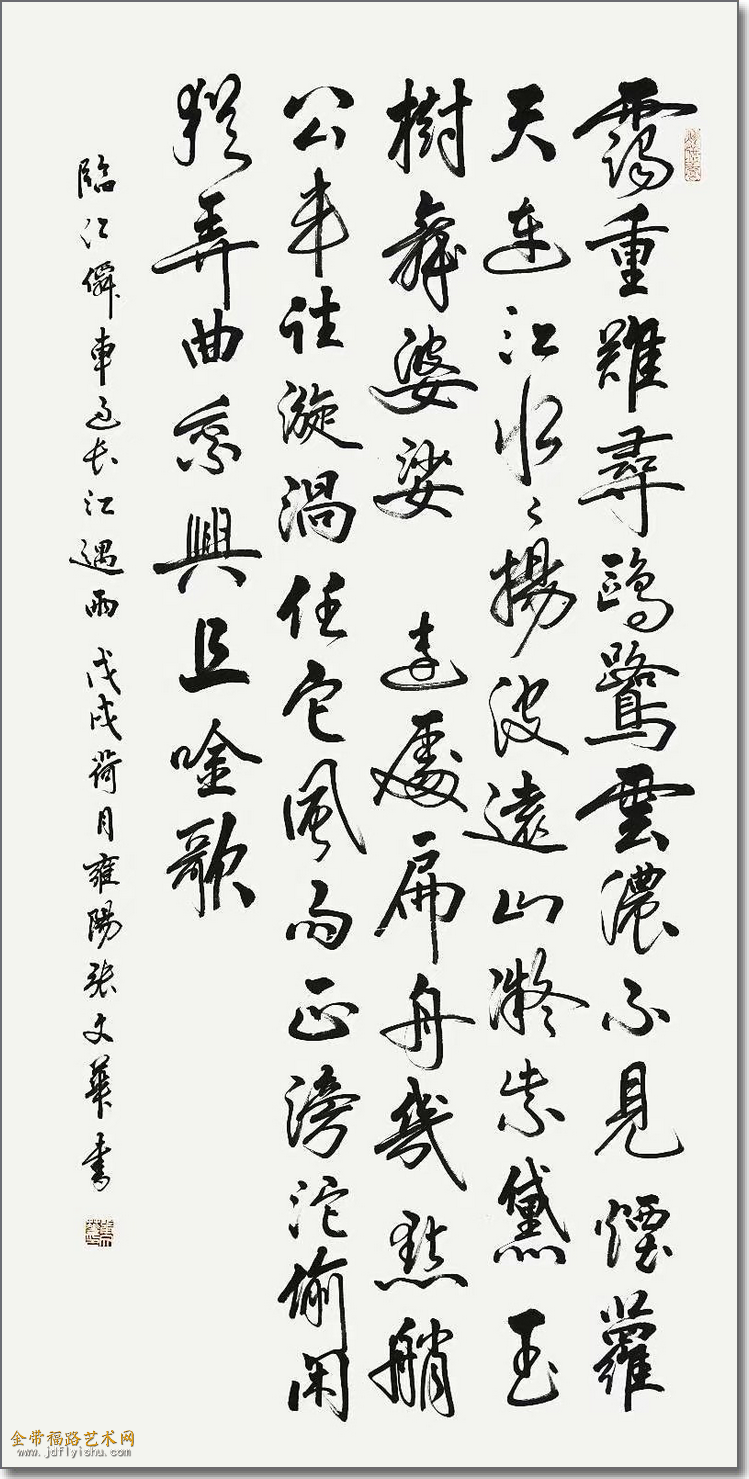 靄重難尋鷗鷺雲濃不見煙蘿
天連江水〻揚波遠山凝紫黛玉
樹舞婆娑 遠處扁舟幾點艄
公漩渦任它風雨正滂沱偷閑
猶弄曲乘興且唫歌
臨江僊車過长江遇雨 戊戌荷月雍陽張文華書
金带福路艺术网
www.jdflyishu.com